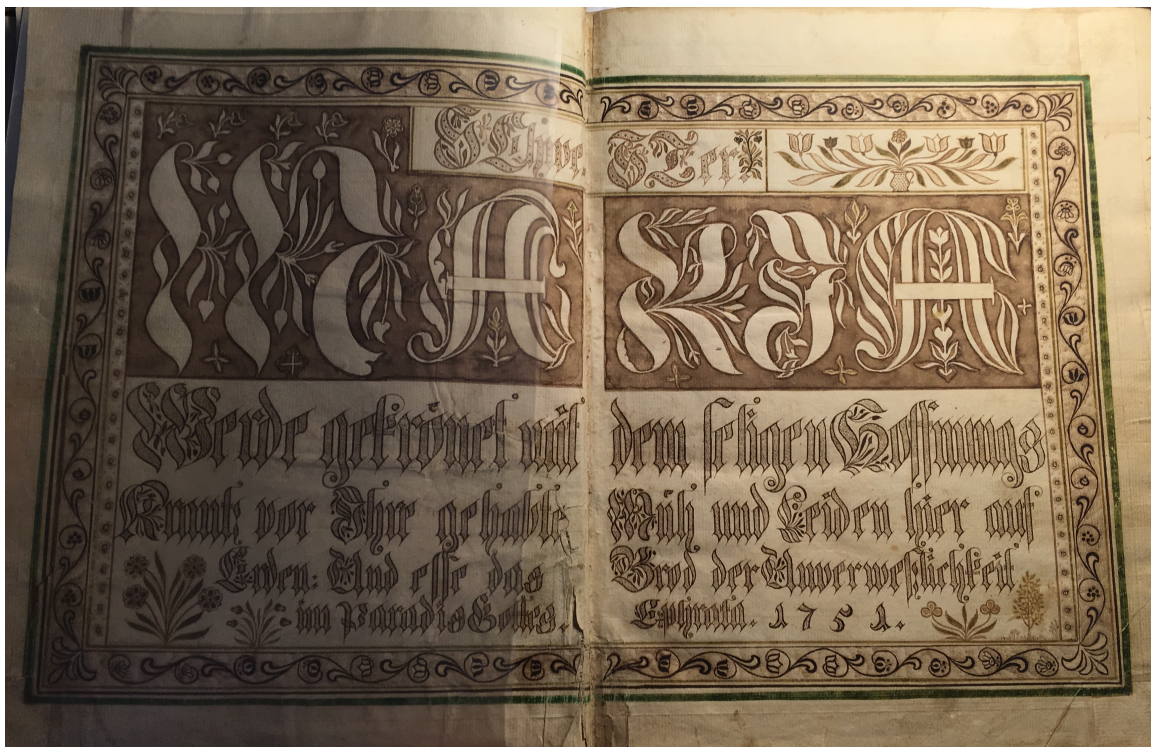 SChwe. STer
MARJA
Werde gekrönet mit dem seligen Hoffnungs
Krantz vor Ihr gehabte Müh und Leiden hier auf
Erden: Und esse das Brod der Unverweßlichkeit
im Paradis Gottes. Ephrata. 1751.